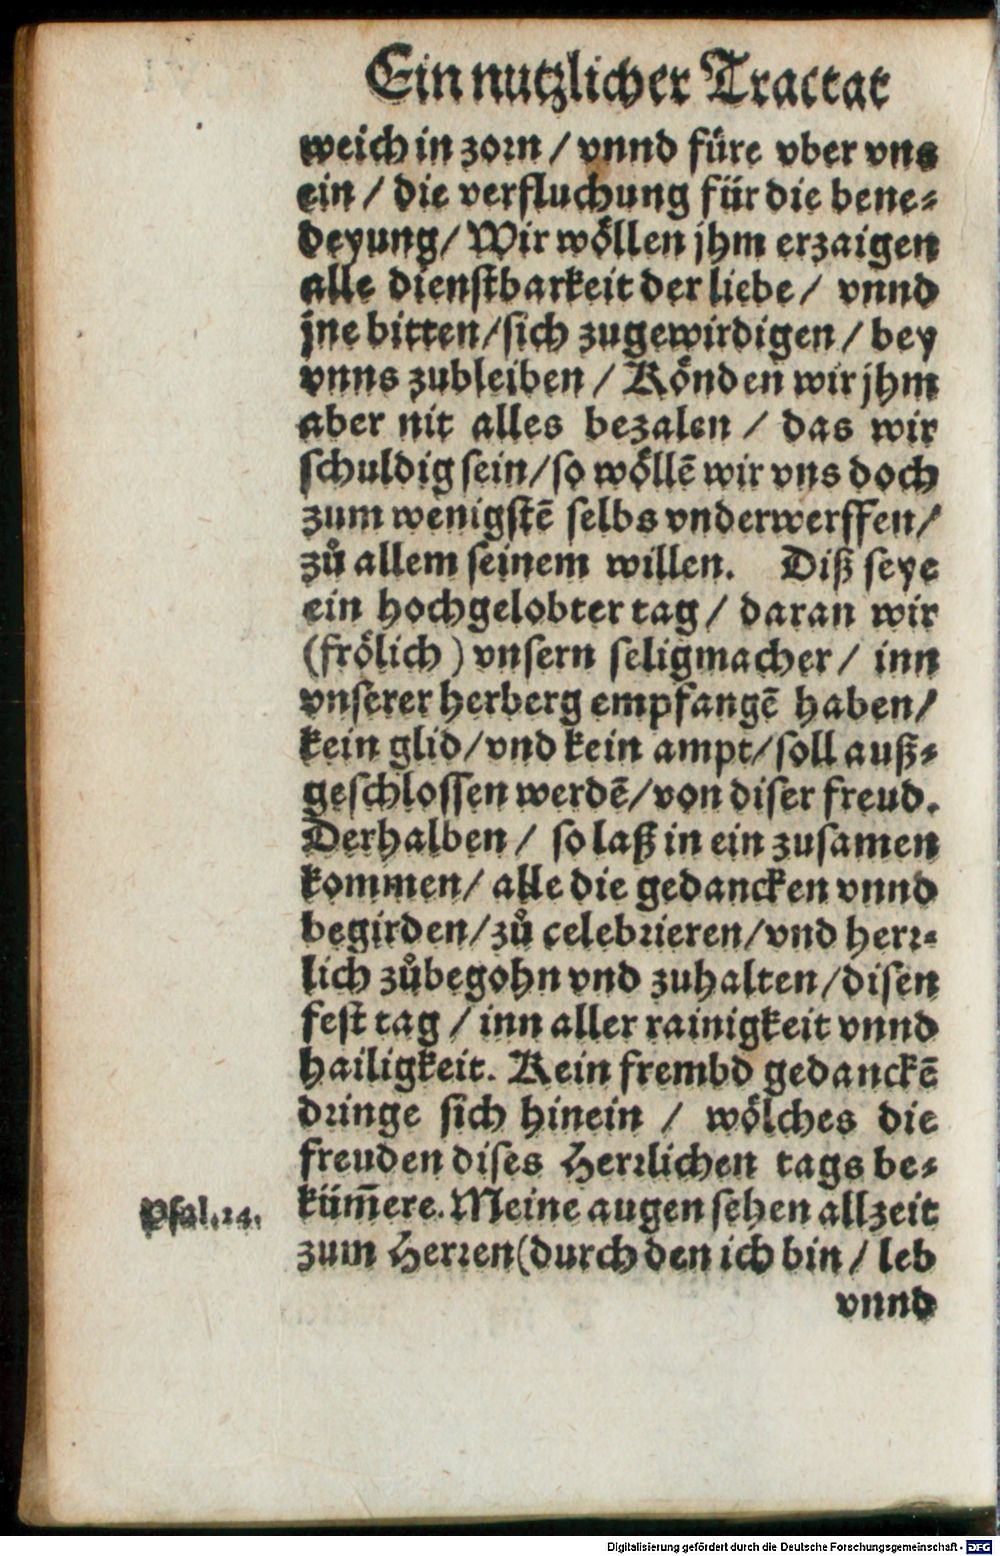 Ein nutzlicher Tractat
weich in zorn / vnnd füre vber vns
ein / die verfluchung für die bene-
deyung / Wir wöllen jhm erzaigen
alle dienstbarkeit der liebe / vnnd
jne bitten / sich zugewirdigen / bey
vnns zubleiben / Könden wir jhm
aber nit alles bezalen / das wir
schuldig sein / so wöllē wir vns doch
zum wenigstē selbs vnderwerffen /
zů allem seinem willen. Diß seye
ein hochgelobter tag / daran wir
(frölich) vnsern seligmacher / inn
vnserer herberg empfangē haben /
kein glid / vnd kein ampt / soll auß-
geschlossen werdē / von diser freud.
Derhalben / so laß in ein zusamen
kommen / alle die gedancken vnnd
begirden / zů celebrieren / vnd herr-
lich zůbegohn vnd zuhalten / disen
fest tag / inn aller rainigkeit vnnd
hailigkeit. Kein frembd gedanckē
dringe sich hinein / wölches die
freuden dises Herrlichen tags be-
küm̄ere. Meine augen sehen allzeit
Psal. 24.
zum Herren (durch den ich bin / leb
vnnd
Digitalisierung gefördert durch die Deutsche Forschungsgemeinschaft - DFG